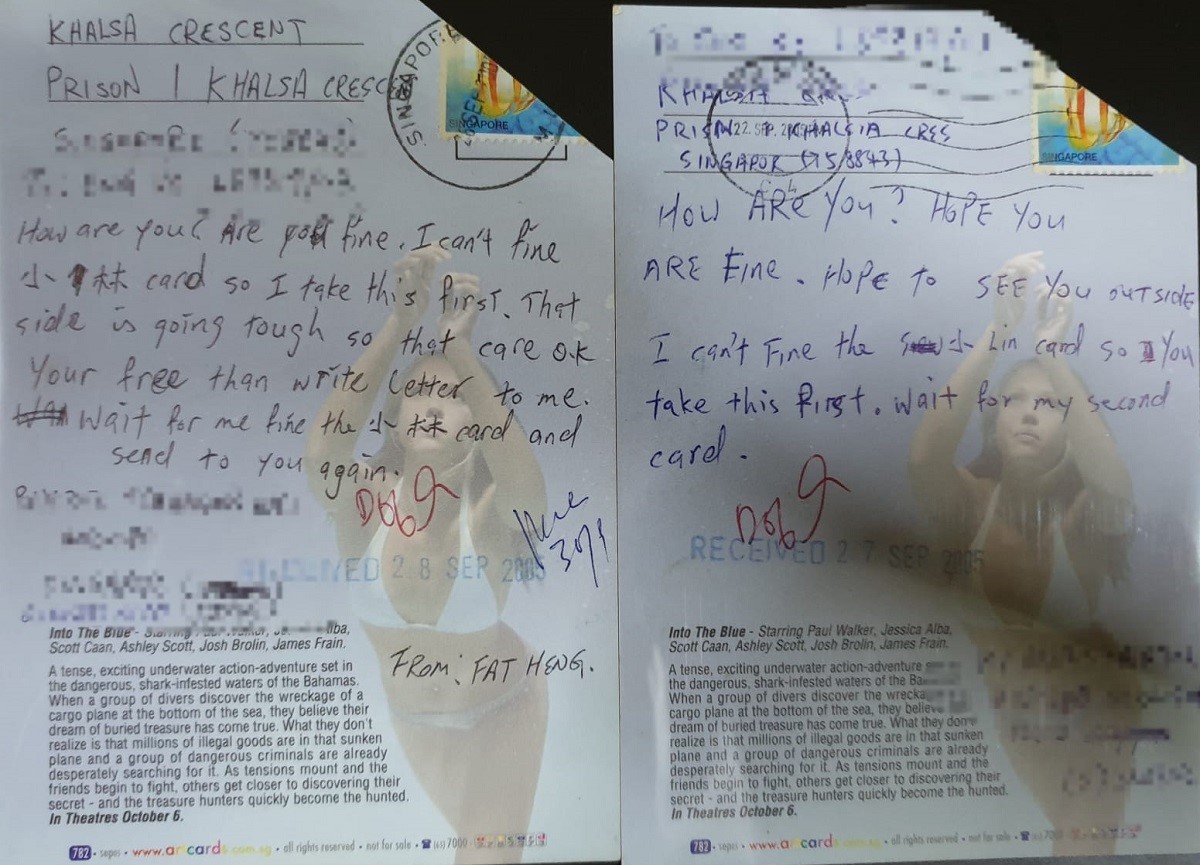 KHALSA CRESCENT
PRISON 1 KHALSA CRESC
SINGAPORE
SINGAPORE
How are you? Are you fine. I can't fine
小林 card so I take this first. That
side is going tough so that care ok
Your free than write letter to me.
Wait for me fine the 小林 card and
send to you again.
RECEIVED 28 SEP 2005
30/9
FROM: FAT HENG.
Into The Blue - Starring
Scott Caan, Ashley Scott, Josh Brolin, James Frain.
A tense, exciting underwater action-adventure set in
the dangerous, shark-infested waters of the Bahamas.
When a group of divers discover the wreckage of a
cargo plane at the bottom of the sea, they believe their
dream of buried treasure has come true. What they don't
realize is that millions of illegal goods are in that sunken
plane and a group of dangerous criminals are already
desperately searching for it. As tensions mount and the
friends begin to fight, others get closer to discovering their
secret - and the treasure hunters quickly become the hunted.
In Theatres October 6.
782 • www.arcards.com.sg • all rights reserved • not for sale • (65) 7000
PRISON 1 KHALSIA CRES
SINGAPOR (758843)
22. SEP. 
SINGAPORE
HOW ARE YOU? HOPE YOU
ARE FINE. HOPE TO SEE YOU OUTSIDE
I can't Fine the 小 Lin card so You
take this first. Wait for my second
card.
RECEIVED 27 SEP 2005
Into The Blue - Starring Paul Walker, Jessica Alba,
Scott Caan, Ashley Scott, Josh Brolin, James Frain.
A tense, exciting underwater action-adventure
the dangerous, shark-infested waters of the
When a group of divers discover the
cargo plane at the bottom of the sea, they believe
dream of buried treasure has come true. What they don't
realize is that millions of illegal goods are in that sunken
plane and a group of dangerous criminals are already
desperately searching for it. As tensions mount and the
friends begin to fight, others get closer to discovering their
secret - and the treasure hunters quickly become the hunted.
In Theatres October 6.
782 • www.arcards.com.sg • all rights reserved • not for sale • 7000